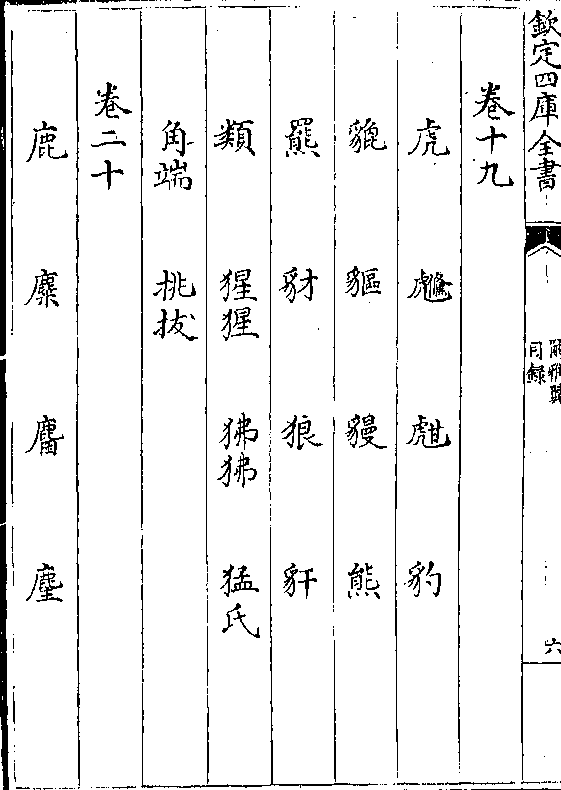 欽定四庫全書
爾雅翼
目録
六
卷十九
虎 虪 甝 豹
貔 貙 䝡 熊
羆 豺 狼 豻
類 猩猩 狒狒 猛氏
角端 挑拔
卷二十
鹿 麋 麕 麈